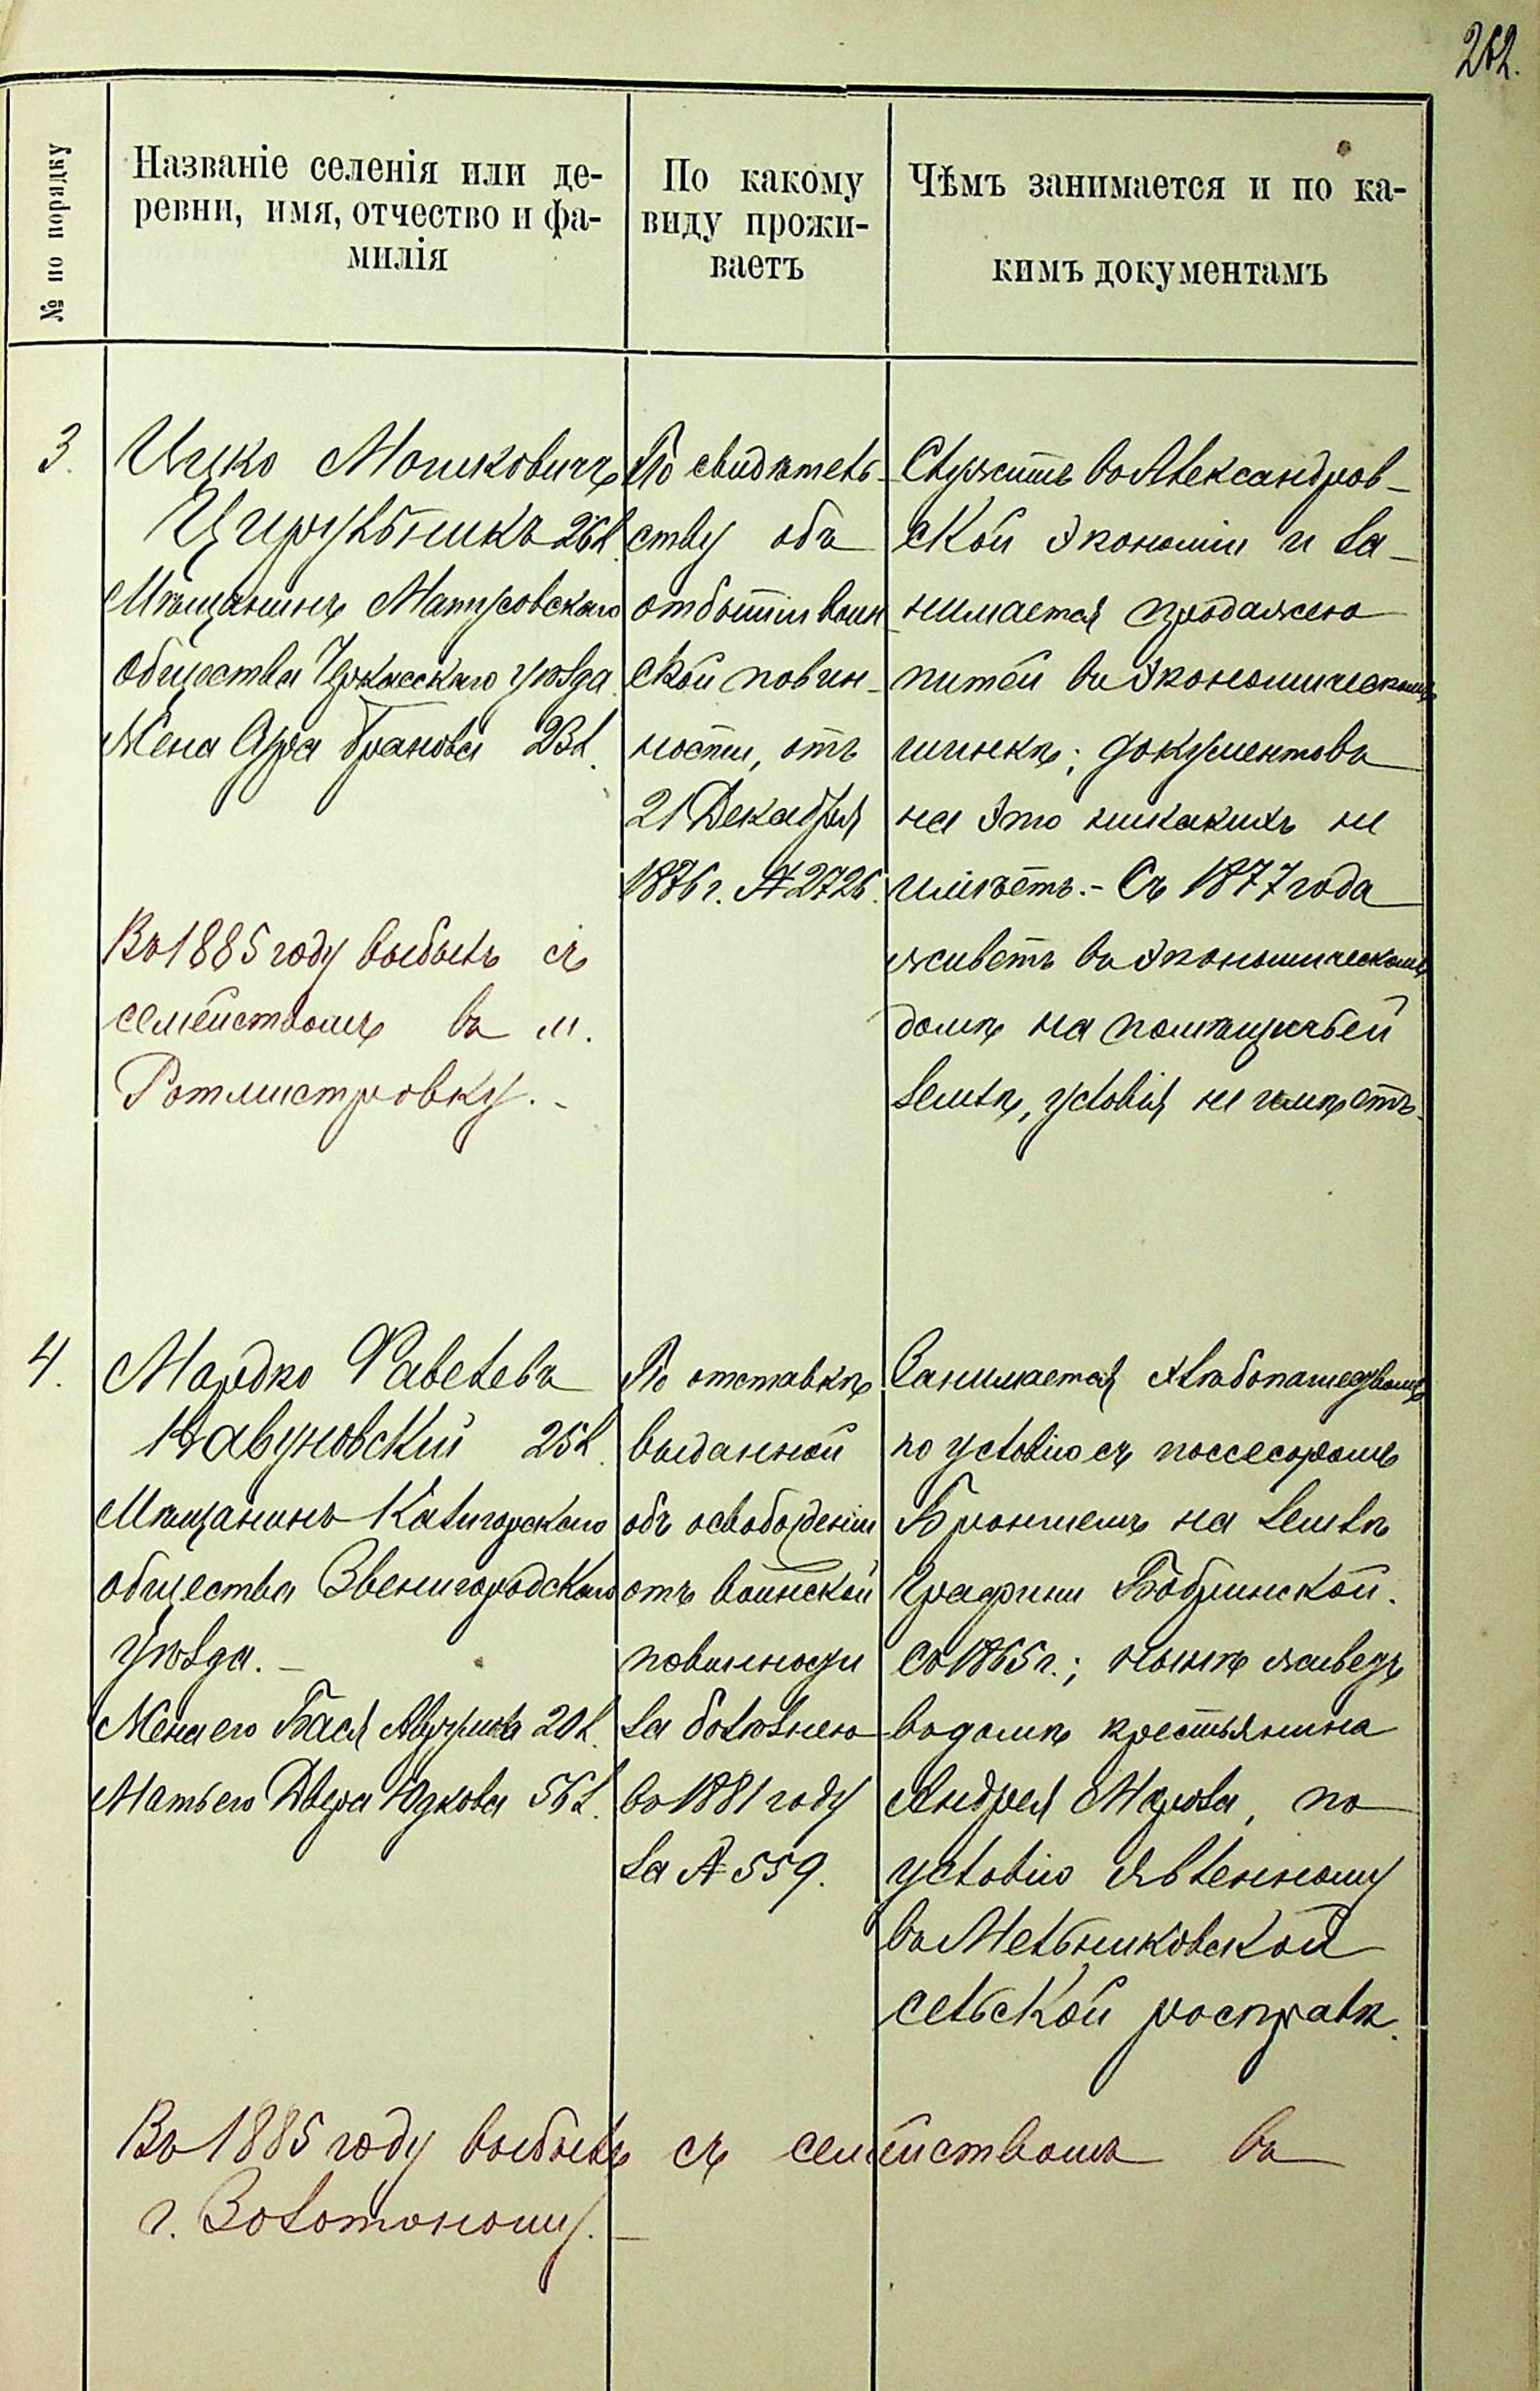 262.
№ по порядку
Названіе селенія или де-
ревни, имя, отчество и фа-
милія
По какому
виду прожи-
ваетъ
Чѣмъ занимается и по ка-
кимъ документамъ
3.
Ицко Мошковичъ
Цирульникъ 26 л.
Мѣщанинъ Матусовскаго
общества Черкасскаго уѣзда
Жена Сура Брановна 23 л.
Въ 1885 году выбылъ съ
семействомъ въ м.
Ротмистровку. -
По свидѣтель-
ству объ
отбытіи воин
ской повин-
ности, отъ
21 Декабря
1876 г. № 2726.
Служитъ въ Александров-
ской экономіи и за-
нимается продажею
питей въ экономическомъ
шинкѣ; документовъ
на это никакихъ не
имѣетъ. - Съ 1877 года
живетъ въ экономическомъ
домѣ на помѣщичьей
землѣ, условія не имѣетъ.
4.
Мордко Фавелевъ
Кавуновскій 25 л.
Мѣщанинъ Калигорскаго
общества Звенигородскаго
уѣзда. -
Жена его Бася 20 л.
Мать его Двера Юдкова 56 л.
По отставкѣ
выданной
объ освобожденіи
отъ воинской
повинности
за болѣзнею
въ 1881 году
за № 559.
Занимается хлѣбопашествомъ
по условію съ поссесоромъ
на землѣ
Графини Бобринской.
Съ 1865 г.; нынѣ живетъ
въ домѣ крестьянина
Андрея Мороза, по
условію явленному
въ Мельниковской
сельской росправѣ.
Въ 1885 году выбылъ съ семействомъ въ
г. Золотоношу. -